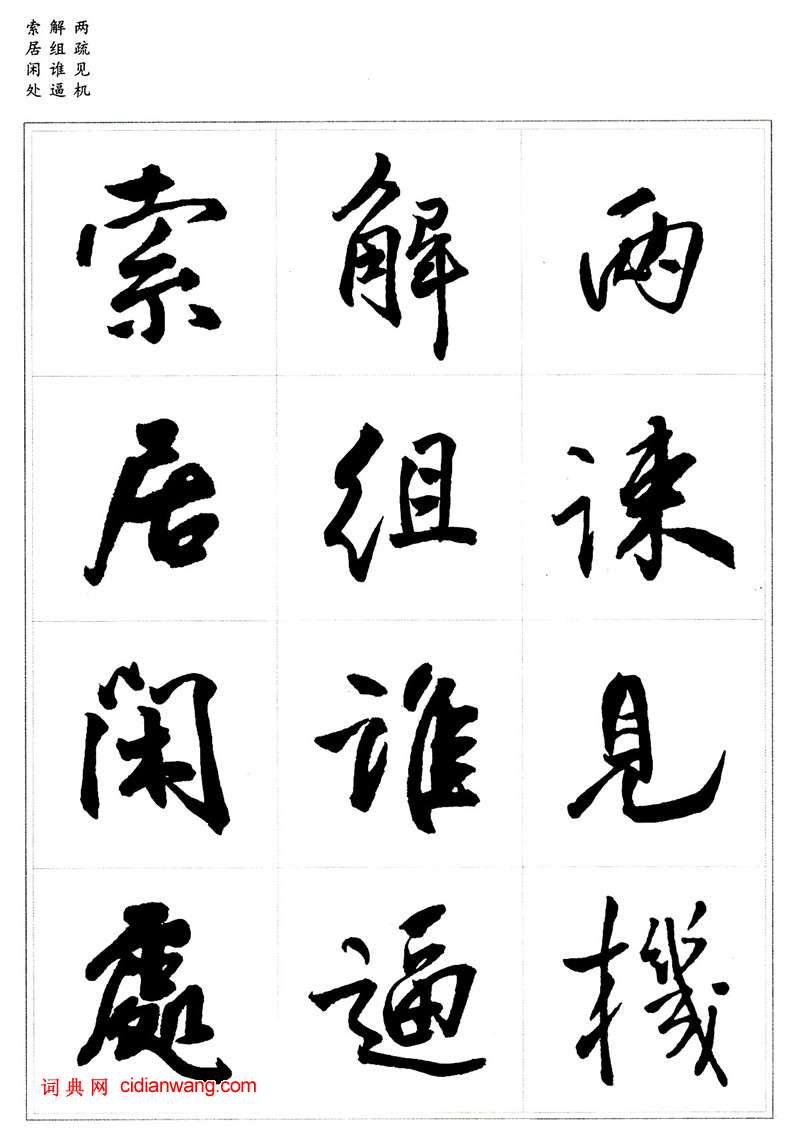 两疏见机
解组谁逼
索居闲处
两谏見機
解組誰逼
索居閑處
词典网 cidianwang.com